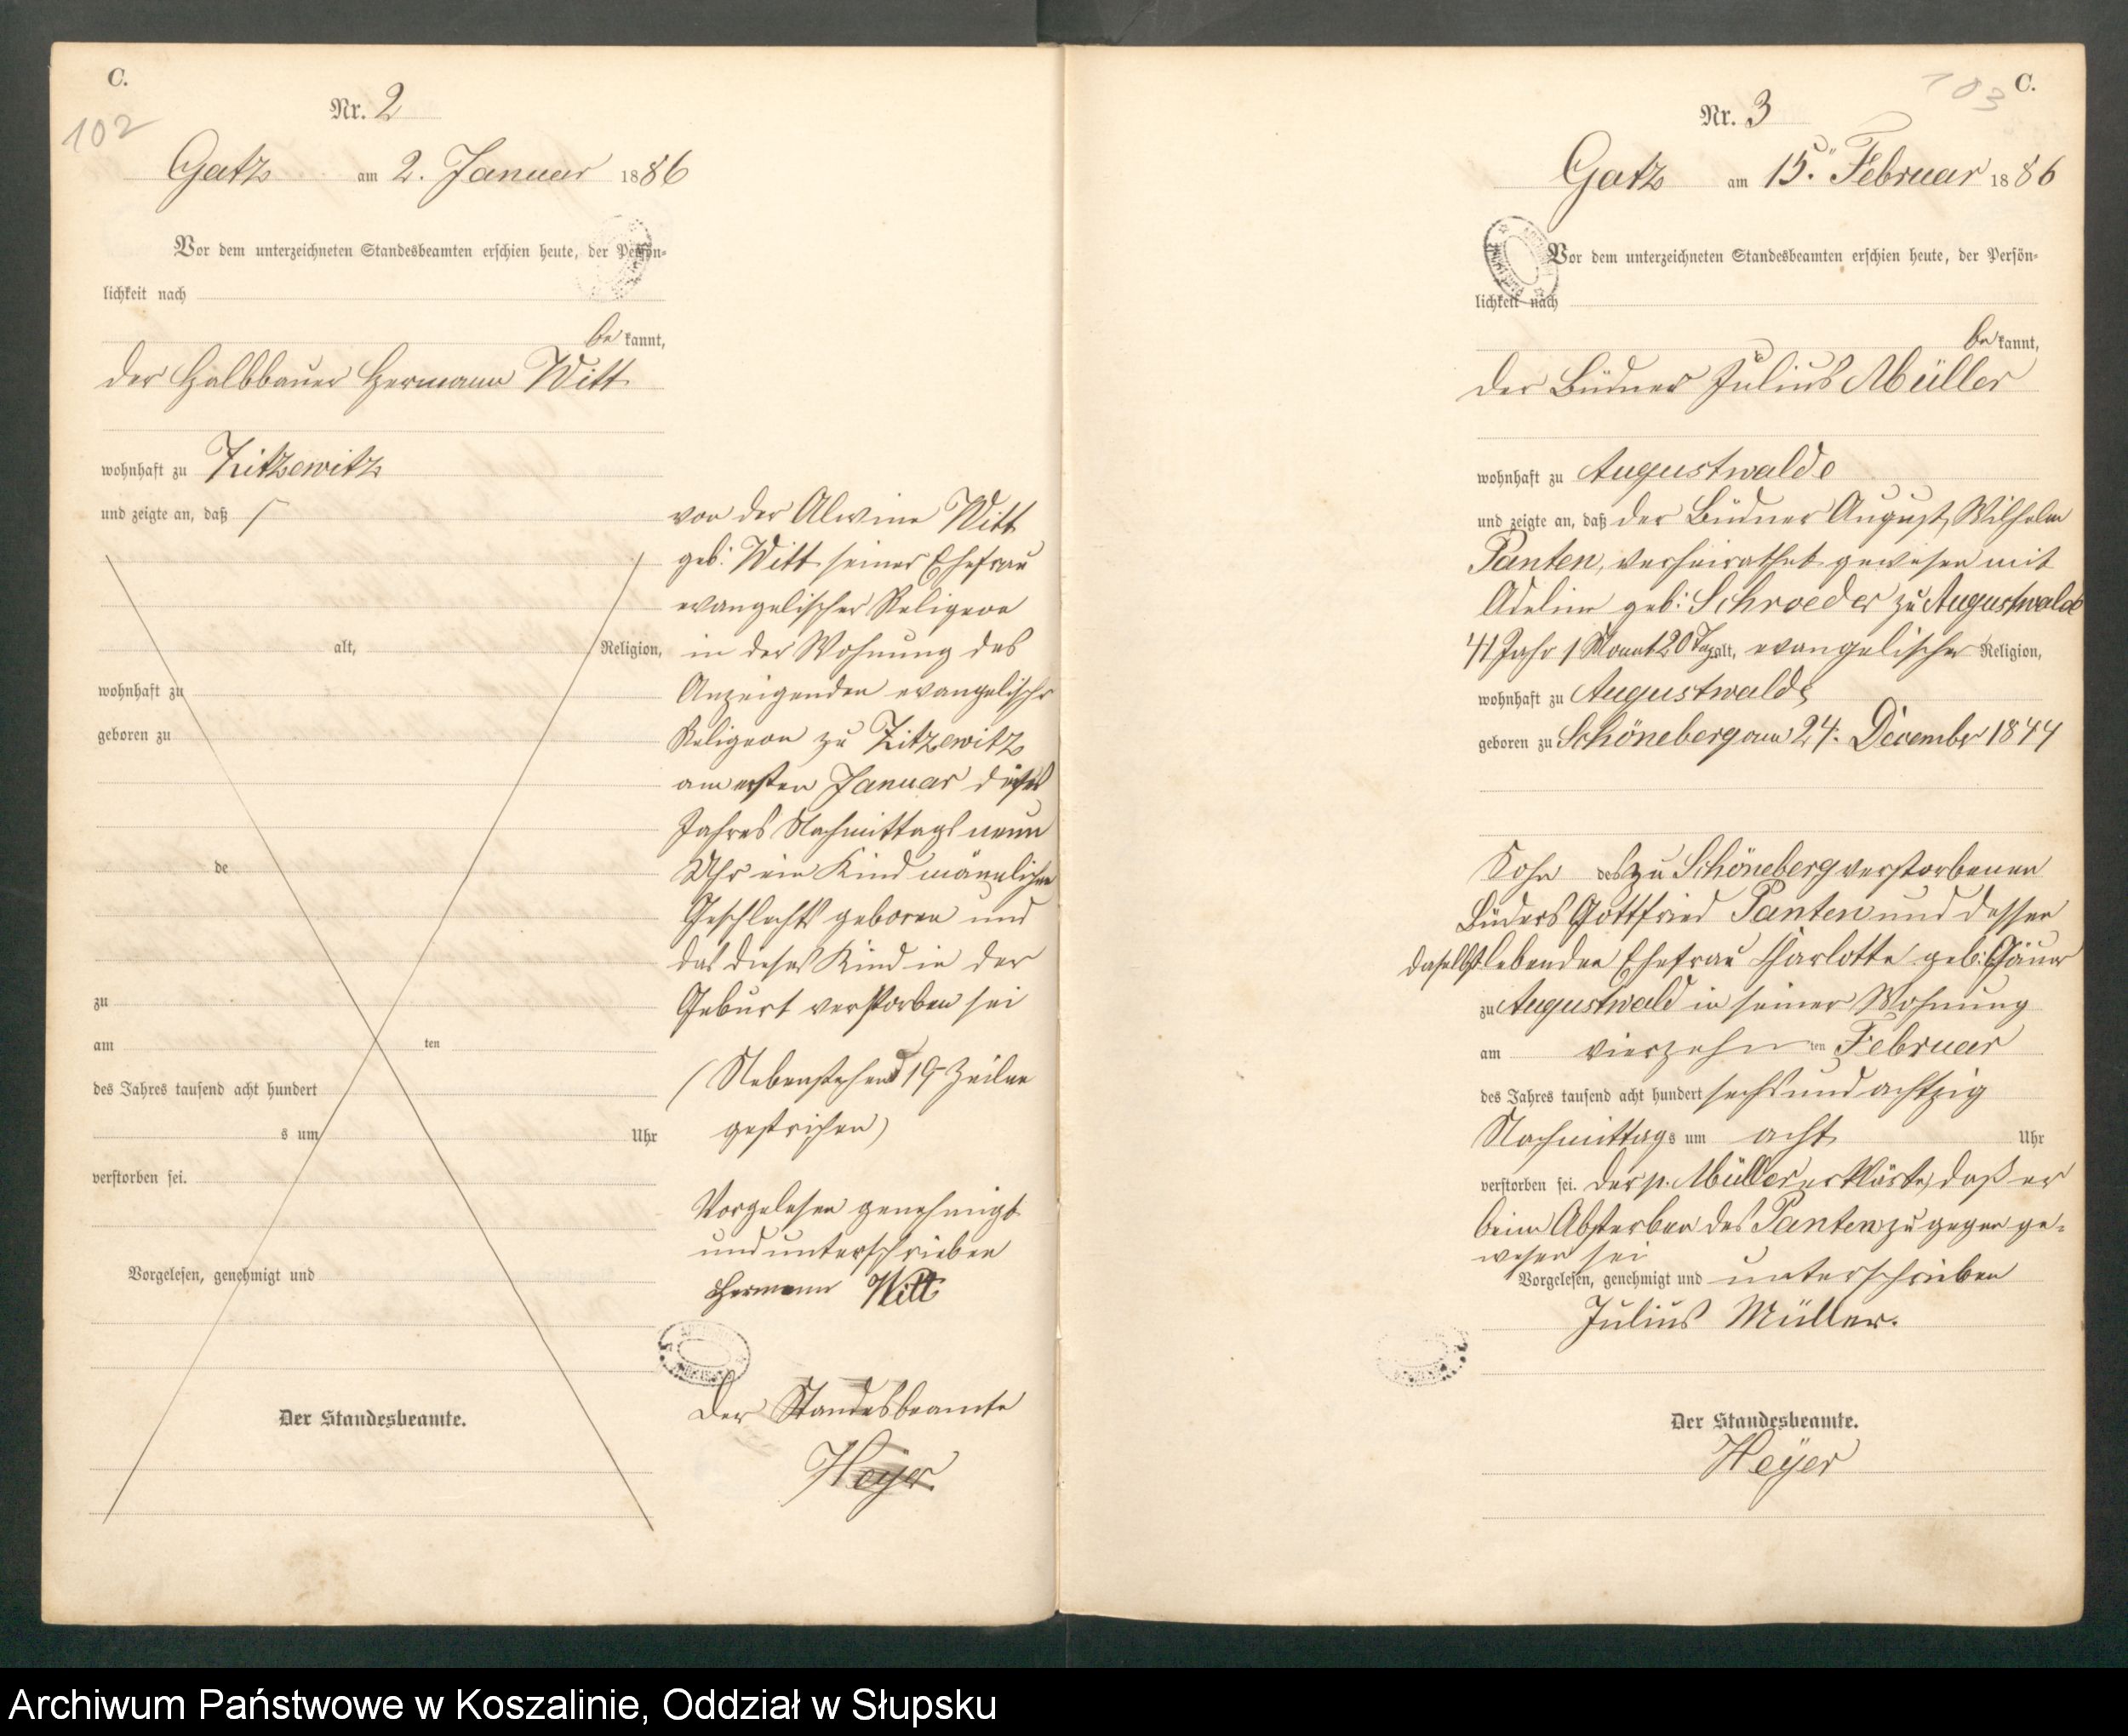 C.
102
Nr. 2
Gatz am 2. Januar 1886
Vor dem unterzeichneten Standesbeamten erschien heute, der Persön-
lichkeit nach
be kannt,
der Halbbauer Hermann Witt
wohnhaft zu Zitzewitz
und zeigte an, daß
alt, Religion,
wohnhaft zu
geboren zu
de
zu
am ten
des Jahres tausend acht hundert
s um Uhr
verstorben sei.
Vorgelesen, genehmigt und
Der Standesbeamte.
von der Alwine Witt
geb: Witt seiner Ehefrau
evangelischer Religion
in der Wohnung des
Anzeigenden evangelischer
Religion zu Zitzewitz
am ersten Januar dieses
Jahres Nachmittags neun
Uhr ein Kind männlichen
Geschlechts geboren und
das dieses Kind in der
Geburt verstorben sei
(Nebenstehend 19 Zeilen
gestrichen)
Vorgelesen genehmigt
und unterschrieben
Hermann Witt
Der Standesbeamte
Heÿer
C.
103
Nr. 3
Gatz am 15. Februar 1886
Vor dem unterzeichneten Standesbeamten erschien heute, der Persön-
lichkeit nach
be kannt,
der Büdner Julius Müller
wohnhaft zu Augustwalde
und zeigte an, daß der Büdner August, Wilhelm
Panten, verheirathet gewesen mit
Adeline geb: Schroeder zu Augustwalde
41 Jahr 1 Monat 20 Tag alt, evangelischer Religion,
wohnhaft zu Augustwalde
geboren zu Schöneberg am 24. December 1844
Sohn des zu Schöneberg verstorbenen
Büdners Gottfried Panten und dessen
daselbst lebenden Ehefrau Charlotte geb:
zu Augustwald in seiner Wohnung
am vierzehn ten Februar
des Jahres tausend acht hundert sechs und achtzig
Nachmittags um acht Uhr
verstorben sei. Der p. Müller erklärte, daß er
beim Absterben des Panten zugegen ge-
wesen sei
Vorgelesen, genehmigt und unterschrieben
Julius Müller.
Der Standesbeamte.
Heÿer
Archiwum Państwowe w Koszalinie, Oddział w Słupsku